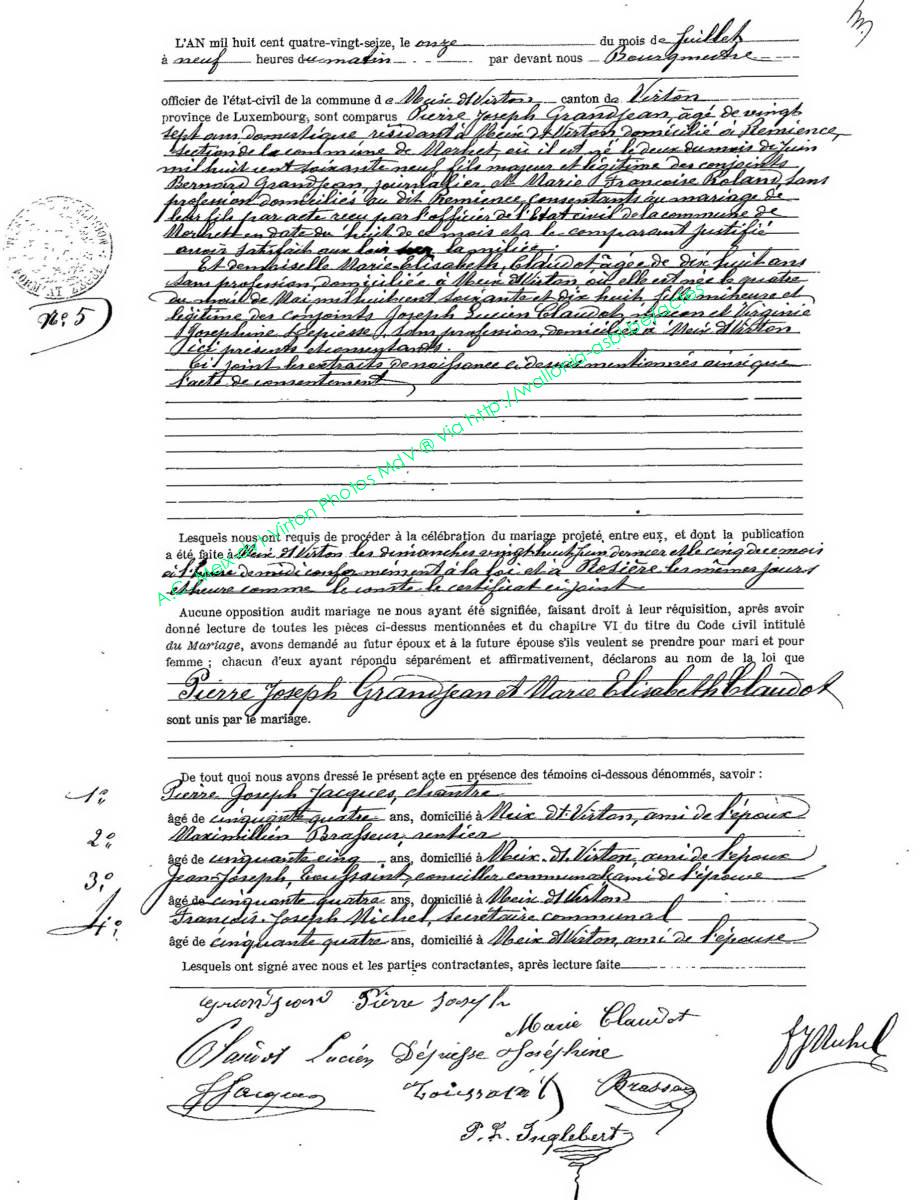 L'AN mil huit cent quatre-vingt-seize, le onze du mois de Juillet
à neuf heures du matin par devant nous Bourgmestre
officier de l'état-civil de la commune de Meix dt Virton canton de Virton
province de Luxembourg, sont comparus Pierre Joseph Grandjean, agé de vingt
sept ans domestique résidant à Meix dt Virton domicilié à Remience,
section de la commune de Morhet, où il est né le deux du mois de juin
mil huit cent soixante neuf, fils majeur et légitime des conjoints
Bernard Grandjean, journalier et Marie Françoise Roland, sans
profession domiciliés au dit Remience, consentants au mariage de
leur fils par acte reçu par l'officier de l'Etat civil de la commune de
Morhet en date du huit de ce mois et a le comparant justifié
avoir satisfait aux lois sur la milice.
Et demoiselle Marie-Elisabeth Claudot âgée de dix huit ans
sans profession, domiciliée à Meix dt Virton où elle est née le quatre
du mois de Mai mil huit cent soixante et dix huit, fille mineure et
légitime des conjoints Joseph Lucien Claudot, maçon et Virginie
Josephine Depiesse, sans profession, domiciliés à Meix dt Virton
ici présents et consentants.
Ci joint les extraits de naissance ci dessus mentionnés ainsi que
l'acte de consentement
No. 5
Lesquels nous ont requis de procéder à la célébration du mariage projeté entre eux, et dont la publication
a été faite à Meix dt Virton les dimanches vingt huit juin dernier et le cinq de ce mois
à l'heure de midi conformément à la loi et à Rosière les mêmes jours
et heure comme le conste le certificat ci joint
Aucune opposition audit mariage ne nous ayant été signifiée, faisant droit à leur réquisition, après avoir
donné lecture de toutes les pièces ci-dessus mentionnées et du chapitre VI du titre du Code civil intitulé
du Mariage, avons demandé au futur époux et à la future épouse s'ils veulent se prendre pour mari et pour
femme ; chacun d'eux ayant répondu séparément et affirmativement, déclarons au nom de la loi que
Pierre Joseph Grandjean et Marie Elisabeth Claudot
sont unis par le mariage.
De tout quoi nous avons dressé le présent acte en présence des témoins ci-dessous dénommés, savoir :
1o Pierre Joseph Jacques, chantre
âgé de cinquante quatre ans, domicilié à Meix dt Virton, ami de l'époux
2o Maximillien Brasseur, rentier
âgé de cinquante cinq ans, domicilié à Meix dt Virton, ami de l'époux
3o Jean-Joseph, Toussaint, conseiller communal, ami de l'épouse
âgé de cinquante quatre ans, domicilié à Meix dt Virton
4o François-Joseph Michel, secrétaire communal
âgé de cinquante quatre ans, domicilié à Meix dt Virton, ami de l'épouse
Lesquels ont signé avec nous et les parties contractantes, après lecture faite
Grandjean Pierre Joseph
Marie Claudot
Claudot Lucien Dépiesse Joséphine
FJ Michel
J Jacques Toussaint J Brasseur
P. L. Inglebert
A.C. Meix dvt Virton Photos MdV ® Via http://wallonia-asbl.be/actes